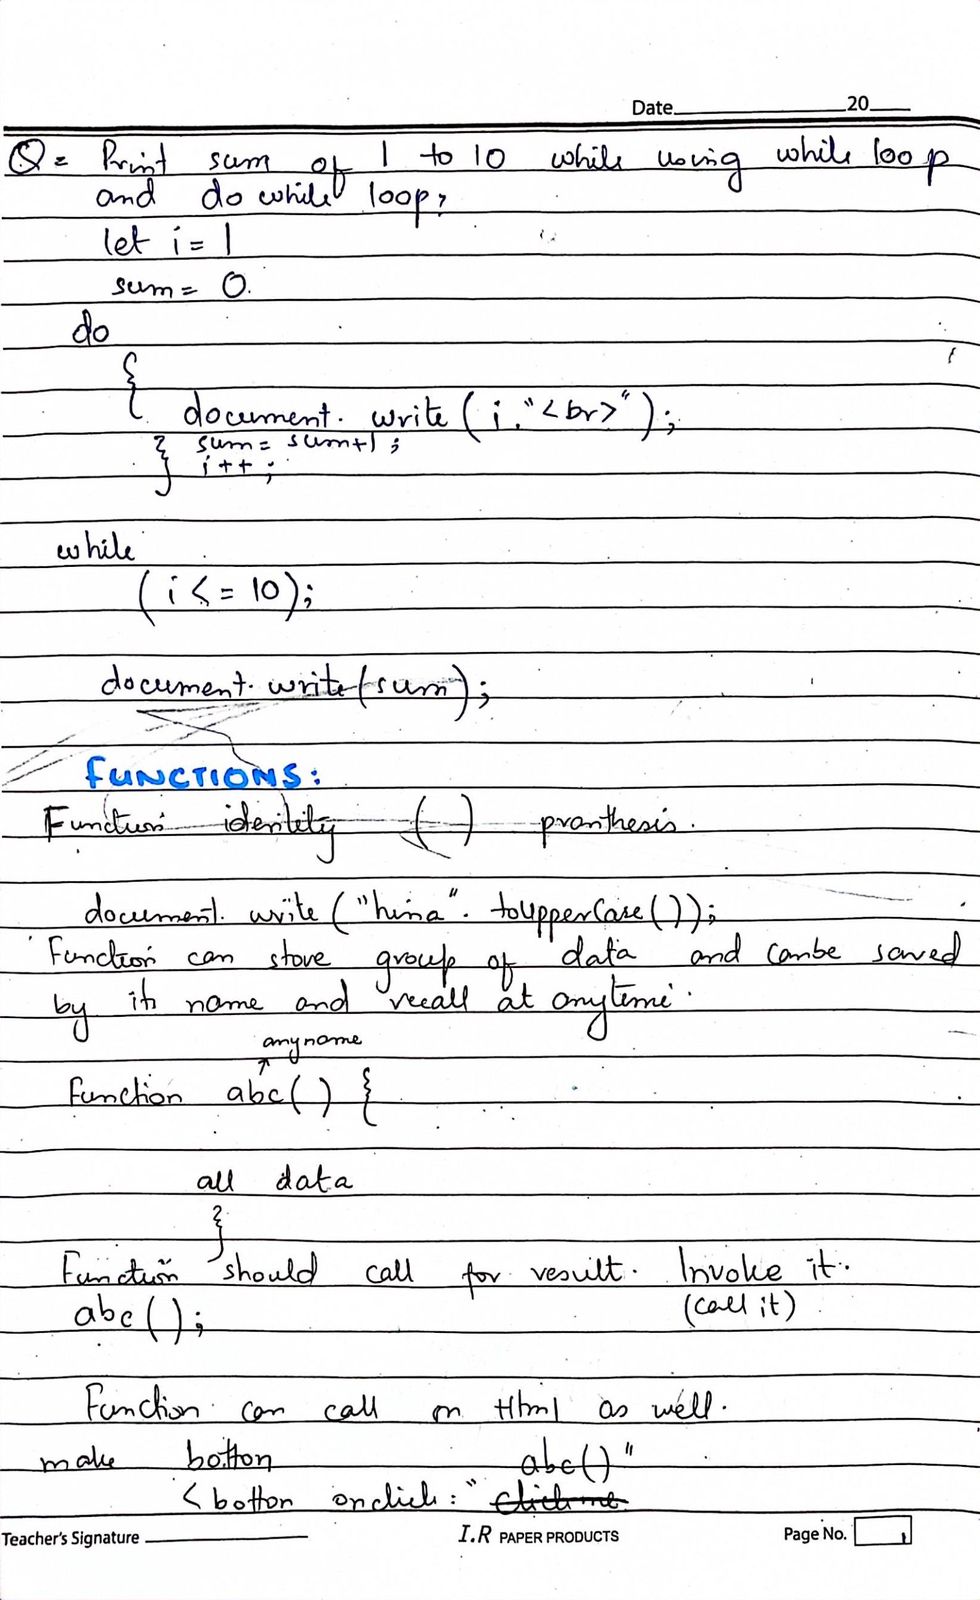 Date 20
Q= Print sum of 1 to 10 while using while loop
and do while loop;
let i = 1
sum = 0.
do
{
document. write ( i, "<br>" );
sum = sum+1 ;
} i++ ;
while
( i <= 10 );
document. write (sum) ;
FUNCTIONS:
Function identity ( ) pranthesis.
document. write ("hina". toUpperCase());
Function can store group of data and canbe saved
by its name and recall at anytime.
anyname
Function abc( ) {
all data
}
Function should call for result. Invoke it.
abc ( ) ; (call it)
Function can call on Html as well.
make botton abc( ) "
< botton onclick : " click me
Teacher's Signature I.R PAPER PRODUCTS Page No.